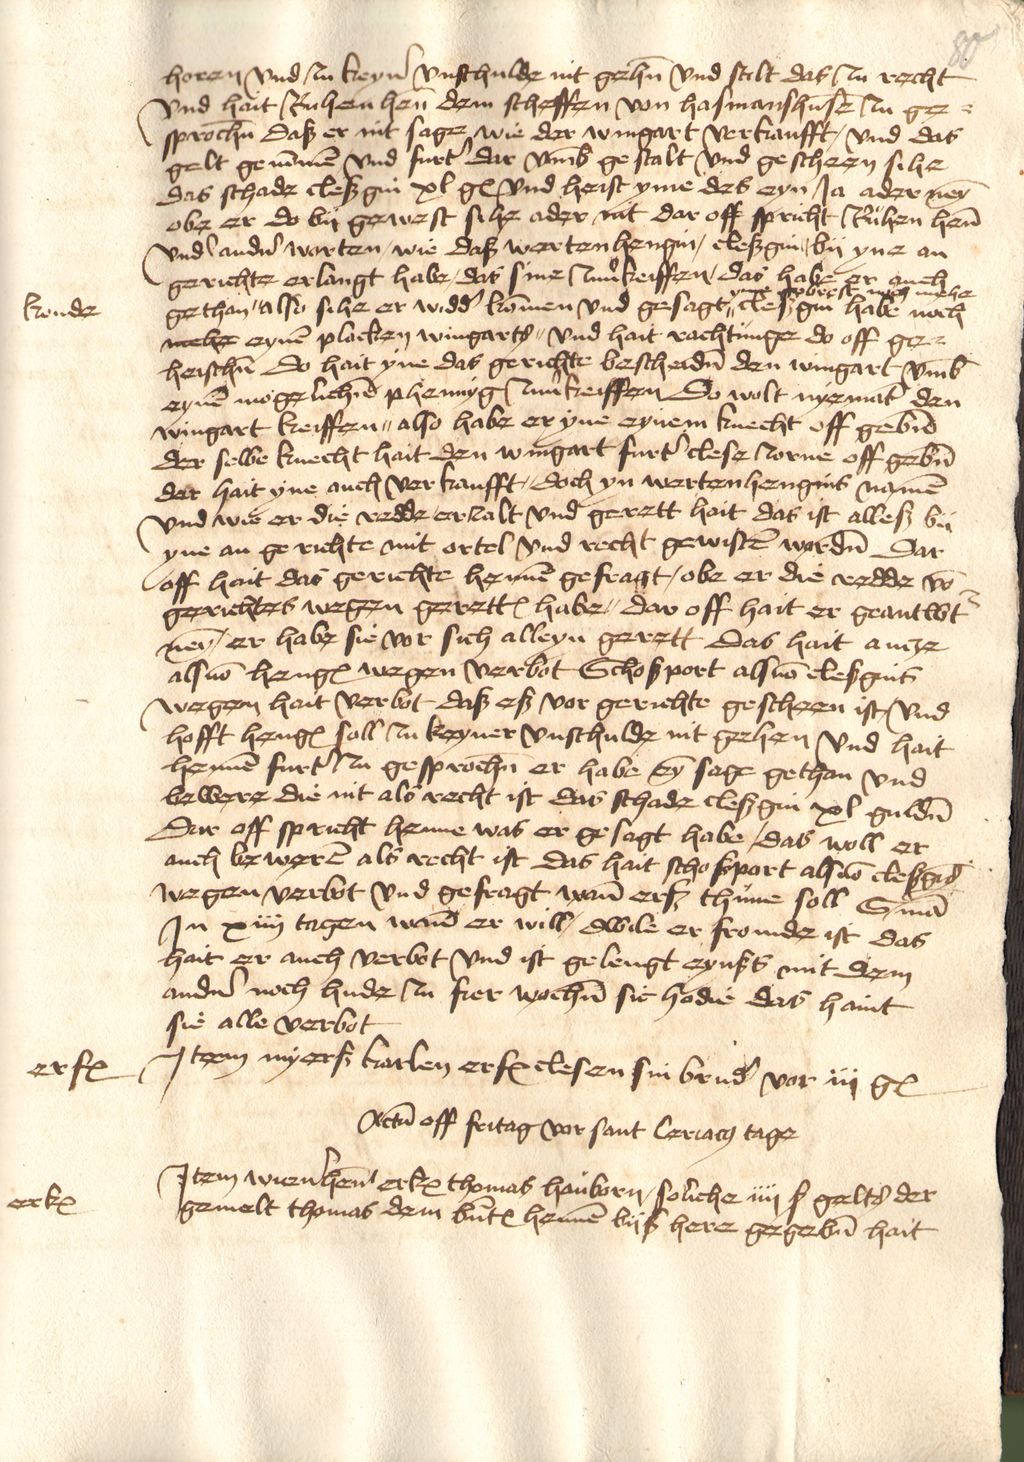 80
horen vnd zu keyner vnschulde nit gehn vnd stilt das zu recht
vnd hait Ruhen hen dem scheffen von hasmanshusen zu ge=
sprochn daß er nit sage wie der wingart verkaufft / vnd das
gelt genummen vnd furter dar vmb gestalt vnd gescheen sihe
das schade cleßgin xl gl vnd heist yme des eyn Ja ader neyn
obe er do bij gewest sihe ader nit dar off spricht Ruhen hen
vnder andern worten / wie daß wertenhengin / cleßgin / bij yne an
gerichte erlangt habe / das sine zuuerkeiffen / das habe er auch
yme gebreste nach mehe
gethan / also sihe er widder komen vnd gesagt // cleßgin habe noch
konde
mehe eynen placken wingarts // vnd hait rachtunge do off ge=
heischn Do hait yne das gerichte bescheidn den wingart vmb
eynen mogelichen phennyg zuuerkeiffen Do wolt nyemant den
wingart keiffen // also habe er yne eynem knecht off gebn
der selbe knecht hait den wingart furter clese zorne off gebn
der hait yne auch verkaufft / doch yn wertenhengins namen
vnd wie er die redde erzalt vnd gerett hait das ist alleß bij
yne an gerichte mit ortel vnd recht gewisen wordn Dar
off hait das gerichte hennen gefragt / obe er die redde von
gerichtes wegen gerett habe / dar off hait er geantwt
neyn / er habe sie vor sich alleyn gerett Das hait ancze
alsuo heng wegen verbot Schoßport alsuo cleßgins
wegen hait verbot daß eß vor gerichte gescheen ist / vnd
hofft heng soll zu keyner vnschulde nit gehen vnd hait
hennen furter zu gesprochn er habe eyn sage gethan vnd
bewere die nit als recht ist das schade cleßgin xl guldn
Dar off spricht henne was er gesagt habe / das woll er
auch beweren als recht ist das hait schoßport alsuo cleßgins
wegen verbot vnd gefragt wan erß thune soll Sententia
In xiiij tagen wann er will / dwile er fromde ist das
hait er auch verbot vnd ist gelengt eynßs mit dem
andern noch hude zu fier wochn sie hodie das haint
sie alle verbot
erf
Item myerß karlen erf clesen sin bruder vor iij gl
Actum off fritag vor sant Ceriacus tage
erk
Item wienhen erk thomas hanborn / soliche iiij ß gelts der
gemelt thomas dem bunt hennen biß here gegebn hait